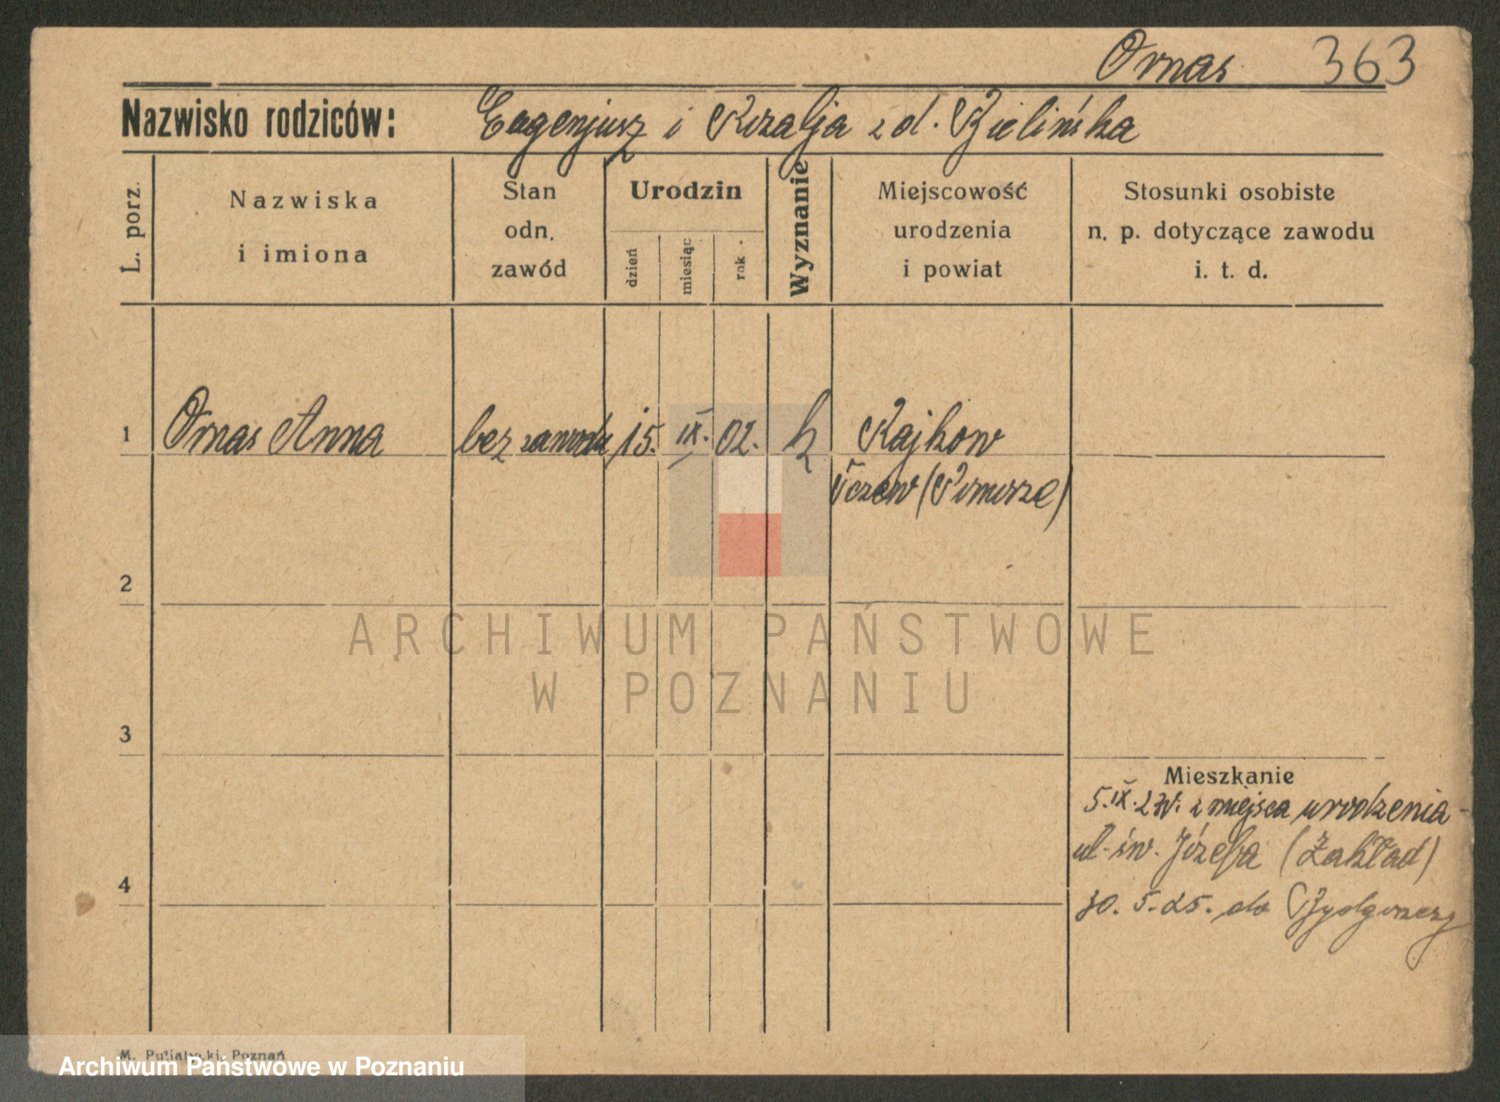 Ornas 363
Nazwisko rodziców: Eugenjusz i Rozalja z d. Bielińska
L. porz.
Nazwiska
i imiona
Stan
odn.
zawód
Urodzin
dzień
miesiąc
rok
Wyznanie
Miejscowość
urodzenia
i powiat
Stosunki osobiste
n. p. dotyczące zawodu
i. t. d.
1 Ornas Anna bez zawodu 15. IX. 02. k Rajkow
Tczew (Pomorze)
2
ARCHIWUM PAŃSTWOWE
W POZNANIU
3
Mieszkanie
5.IX. z miejsca urodzenia
ul. św. Józefa (Zakład)
4
30. 5. 25. do Bydgoszczy
M. Putiatycki, Poznań
Archiwum Państwowe w Poznaniu